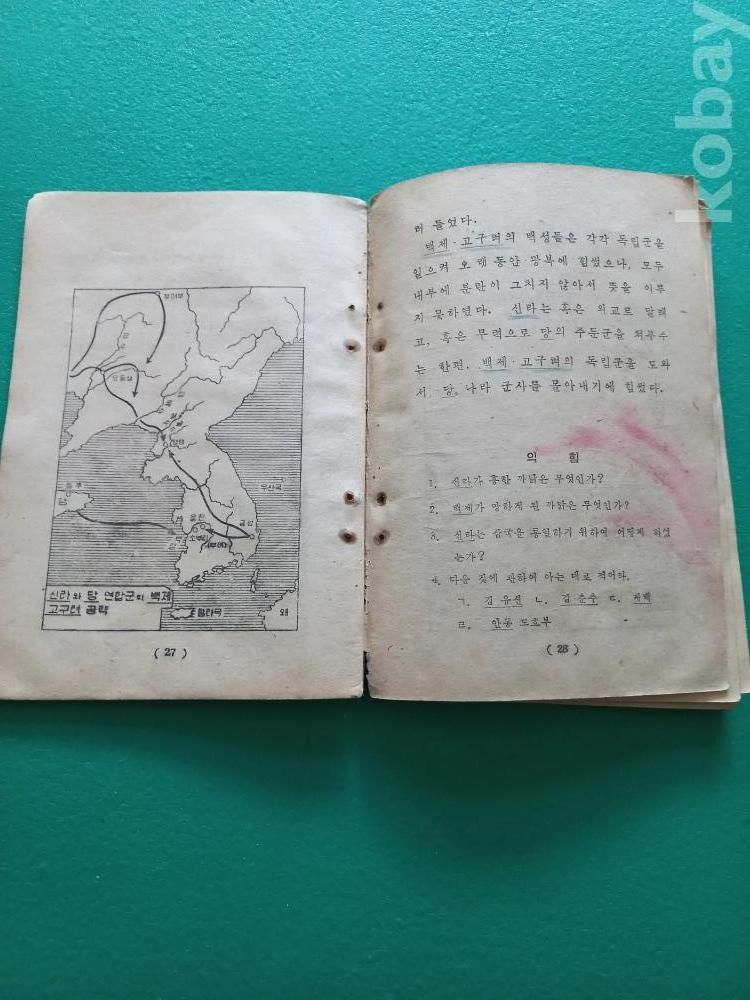 부여부
요동성
평양
우산국
등주
웅진
금성
탐라국
왜
신라와 당 연합군의 백제
고구려 공략
( 27 )
러 들었다.
백제·고구려의 백성들은 각각 독립군을
일으켜 오래 동안 광복에 힘썼으나, 모두
내부에 분란이 그치지 않아서 뜻을 이루
지 못하였다. 신라는 혹은 외교로 달래
고, 혹은 무력으로 당의 주둔군을 쳐부수
는 한편, 백제·고구려의 독립군을 도와
서 당 나라 군사를 몰아내기에 힘썼다.
익 힘
1. 신라가 흥한 까닭은 무엇인가?
2. 백제가 망하게 된 까닭은 무엇인가?
3. 신라는 삼국을 통일하기 위하여 어떻게 하였
는가?
4. 다음 것에 관하여 아는 대로 적어라.
ㄱ. 김 유신 ㄴ. 김 춘추 ㄷ. 계백
ㄹ. 안동 도호부
( 28 )
kobay